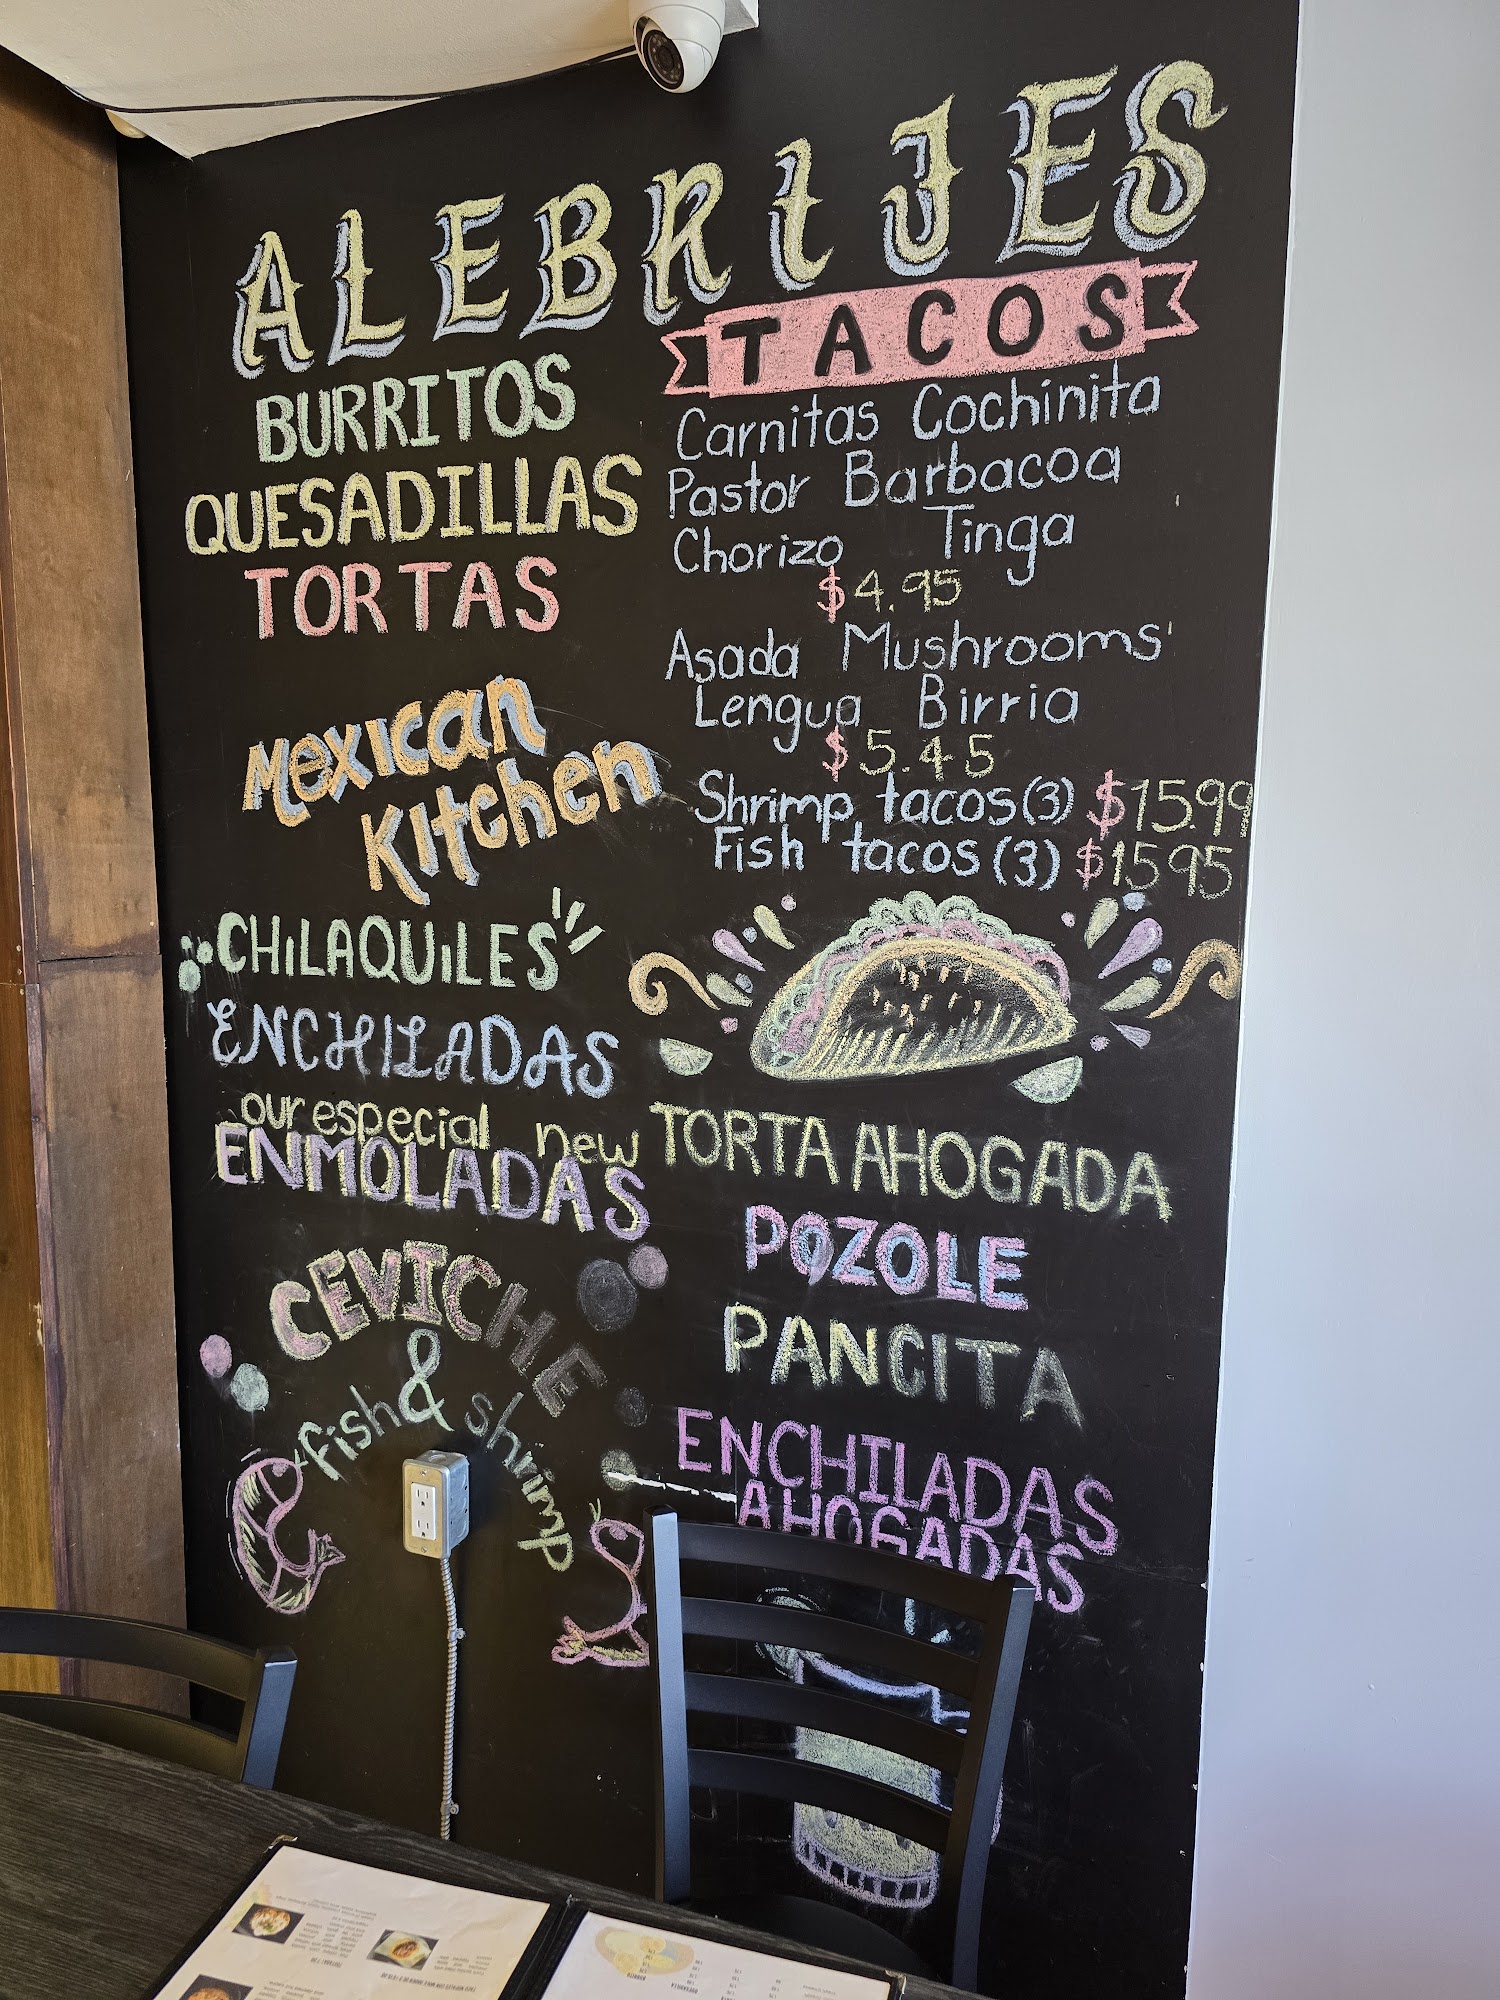 ALEBRIJES
BURRITOS
QUESADILLAS
TORTAS
Mexican
Kitchen
CHILAQUILES
ENCHILADAS
our especial new
ENMOLADAS
CEVICHE
&
fish shrimp
TACOS
Carnitas Cochinita
Pastor Barbacoa
Chorizo Tinga
$4.95
Asada Mushrooms
Lengua Birria
$5.45
Shrimp tacos (3) $15.99
Fish tacos (3) $15 95
TORTA AHOGADA
POZOLE
PANCITA
ENCHILADAS
AHOGADAS